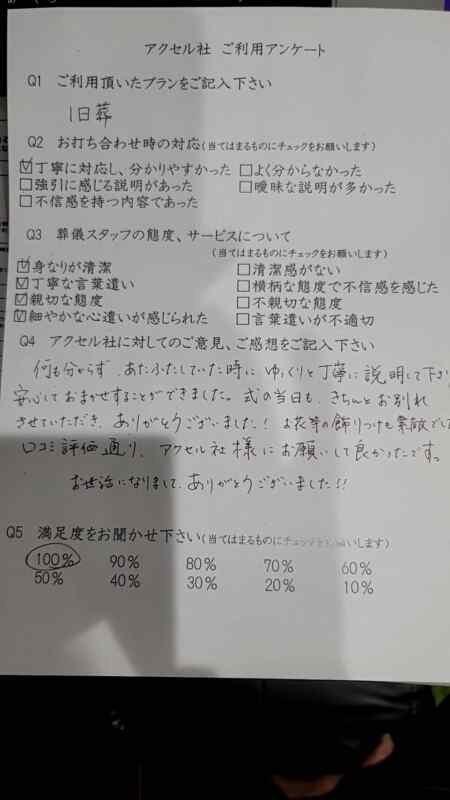 アクセル社 ご利用アンケート
Q1 ご利用頂いたプランをご記入下さい
1日葬
Q2 お打ち合わせ時の対応(当てはまるものにチェックをお願いします)
☑丁寧に対応し、分かりやすかった □よく分からなかった
□強引に感じる説明があった □曖昧な説明が多かった
□不信感を持つ内容であった
Q3 葬儀スタッフの態度、サービスについて
(当てはまるものにチェックをお願いします)
☑身なりが清潔 □清潔感がない
☑丁寧な言葉遣い □横柄な態度で不信感を感じた
☑親切な態度 □不親切な態度
☑細やかな心遣いが感じられた □言葉遣いが不適切
Q4 アクセル社に対してのご意見、ご感想をご記入下さい
何も分からず、あたふたしていた時に ゆっくりと丁寧に説明して下さり
安心しておまかせすることができました。式の当日も、きちんとお別れ
させていただき、ありがとうございました! お花等の飾りつけも素敵でした
口コミ評価通り、アクセル社様にお願いして良かったです。
お世話になりまして、ありがとうございました!!
Q5 満足度をお聞かせ下さい(当てはまるものにチェックをお願いします)
100% 90% 80% 70% 60%
50% 40% 30% 20% 10%